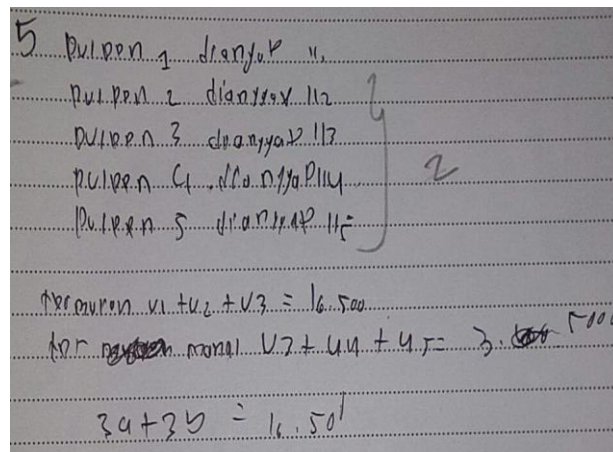 5 pulpen 1 dianyap u1
pulpen 2 dianyyap u2
pulpen 3 dianyyap u3
pulpen 4 dianyyap u4
pulpen 5 dianyyap u5
2
termuran u1 + u2 + u3 = 16.500
ter mahal u3 + u4 + u5 = 3. 5000
3a + 3b = 16.50